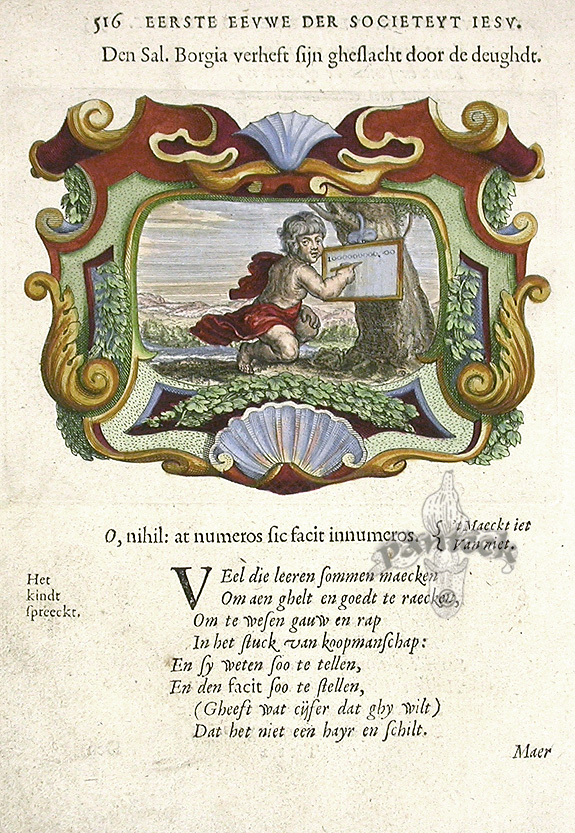 516 EERSTE EEVWE DER SOCIETEYT IESV.
Den Sal. Borgia verheft sijn gheslacht door de deughdt.
1000000000,00
O, nihil: at numeros sic facit innumeros. { 't Maeckt iet
{ Van niet.
Het
kindt
spreeckt.
VEel die leeren sommen maecken
Om aen ghelt en goedt te raecken,
Om te wesen gauw en rap
In het stuck van koopmanschap:
En sy weten soo te tellen,
En den facit soo te stellen,
(Gheeft wat cijfer dat ghy wilt)
Dat het niet een hayr en schilt.
Maer